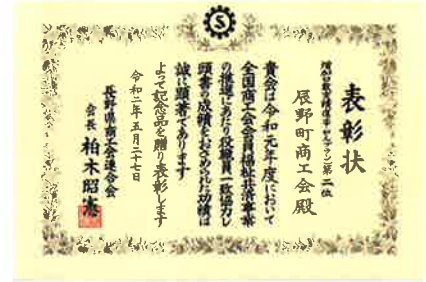 表彰状
増加口数実績優秀(全プラン)第二位
辰野町商工会殿
貴会は令和元年度において
全国商工会会員福祉共済事業
の推進にあたり役職員一致協力し
頭書の成績をおさめられた功績は
誠に顕著であります
よって記念品を贈り表彰します
令和二年五月二十七日
長野県商工会連合会
会長 柏木昭憲